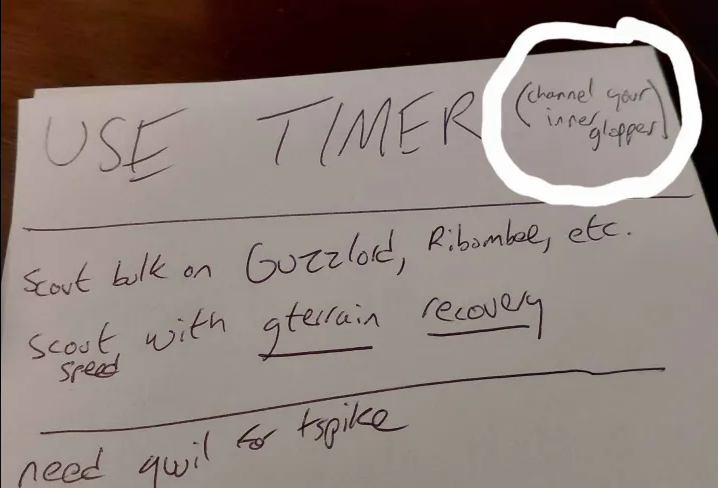 USE TIMER (channel your
inner
glopper)
Scout bulk on Guzzlord, Ribombee, etc.
Scout with gterrain recovery
speed
need qwil for tspike